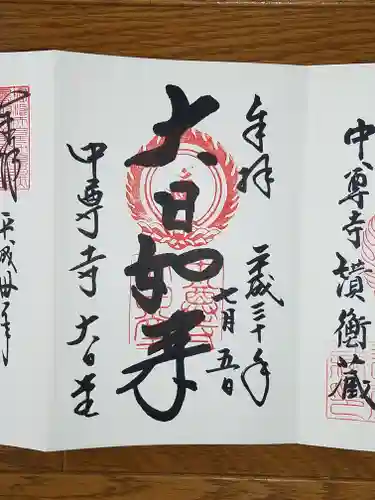 中尊寺讃衡蔵
奉拝
平成三十年
七月五日
大日如来
中尊寺大日堂
平成卅年